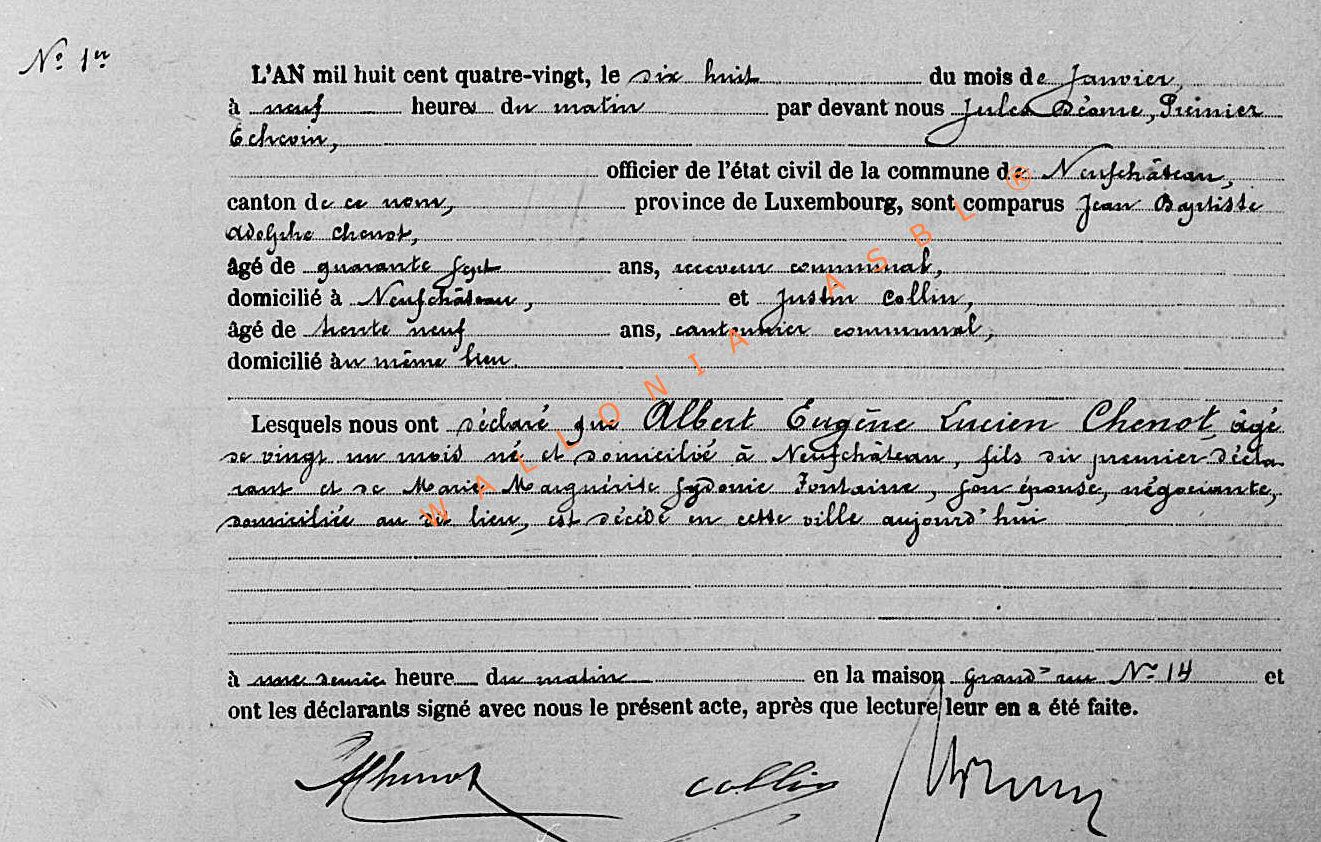 N° 1er
L'AN mil huit cent quatre-vingt, le dix huit du mois de Janvier,
à neuf heures du matin par devant nous Jules Déome, Premier
Echevin,
officier de l'état civil de la commune de Neufchâteau,
canton de ce nom, province de Luxembourg, sont comparus Jean Baptiste
Adolphe Chenot,
âgé de quarante sept ans, receveur communal,
domicilié à Neufchâteau, et Justin Collin,
âgé de trente neuf ans, cantonnier communal,
domicilié au même lieu.
Lesquels nous ont déclaré que Albert Eugène Lucien Chenot, âgé
de vingt un mois né et domicilié à Neufchâteau, fils du premier décla
rant et de Marie Marguérite Sydonie Fontaine, son épouse, négociante,
domiciliée au dit lieu, est décédé en cette ville aujourd'hui
à une demie heure du matin en la maison grand'rue N° 14 et
ont les déclarants signé avec nous le présent acte, après que lecture leur en a été faite.
AChenot collin
WALLONIA ASBL ®